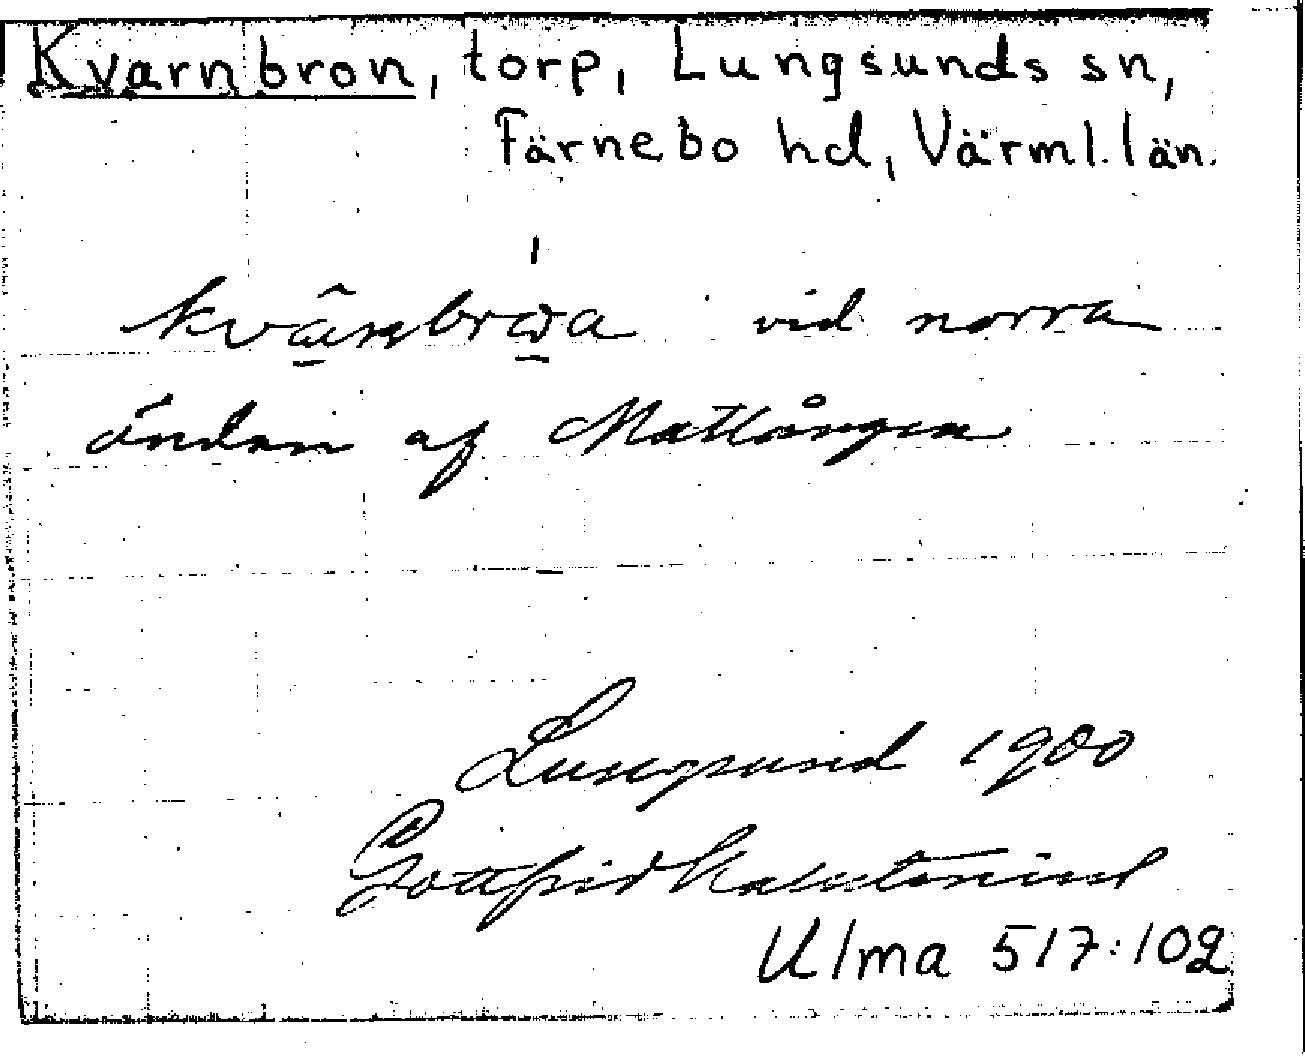 Kvarnbron, torp, Lungsunds sn,
Färnebo hd, Värml. län.
vid norra
ändan af Mattlången
Lungsund 1900
Gottfrid Kallstenius
Ulma 517:102